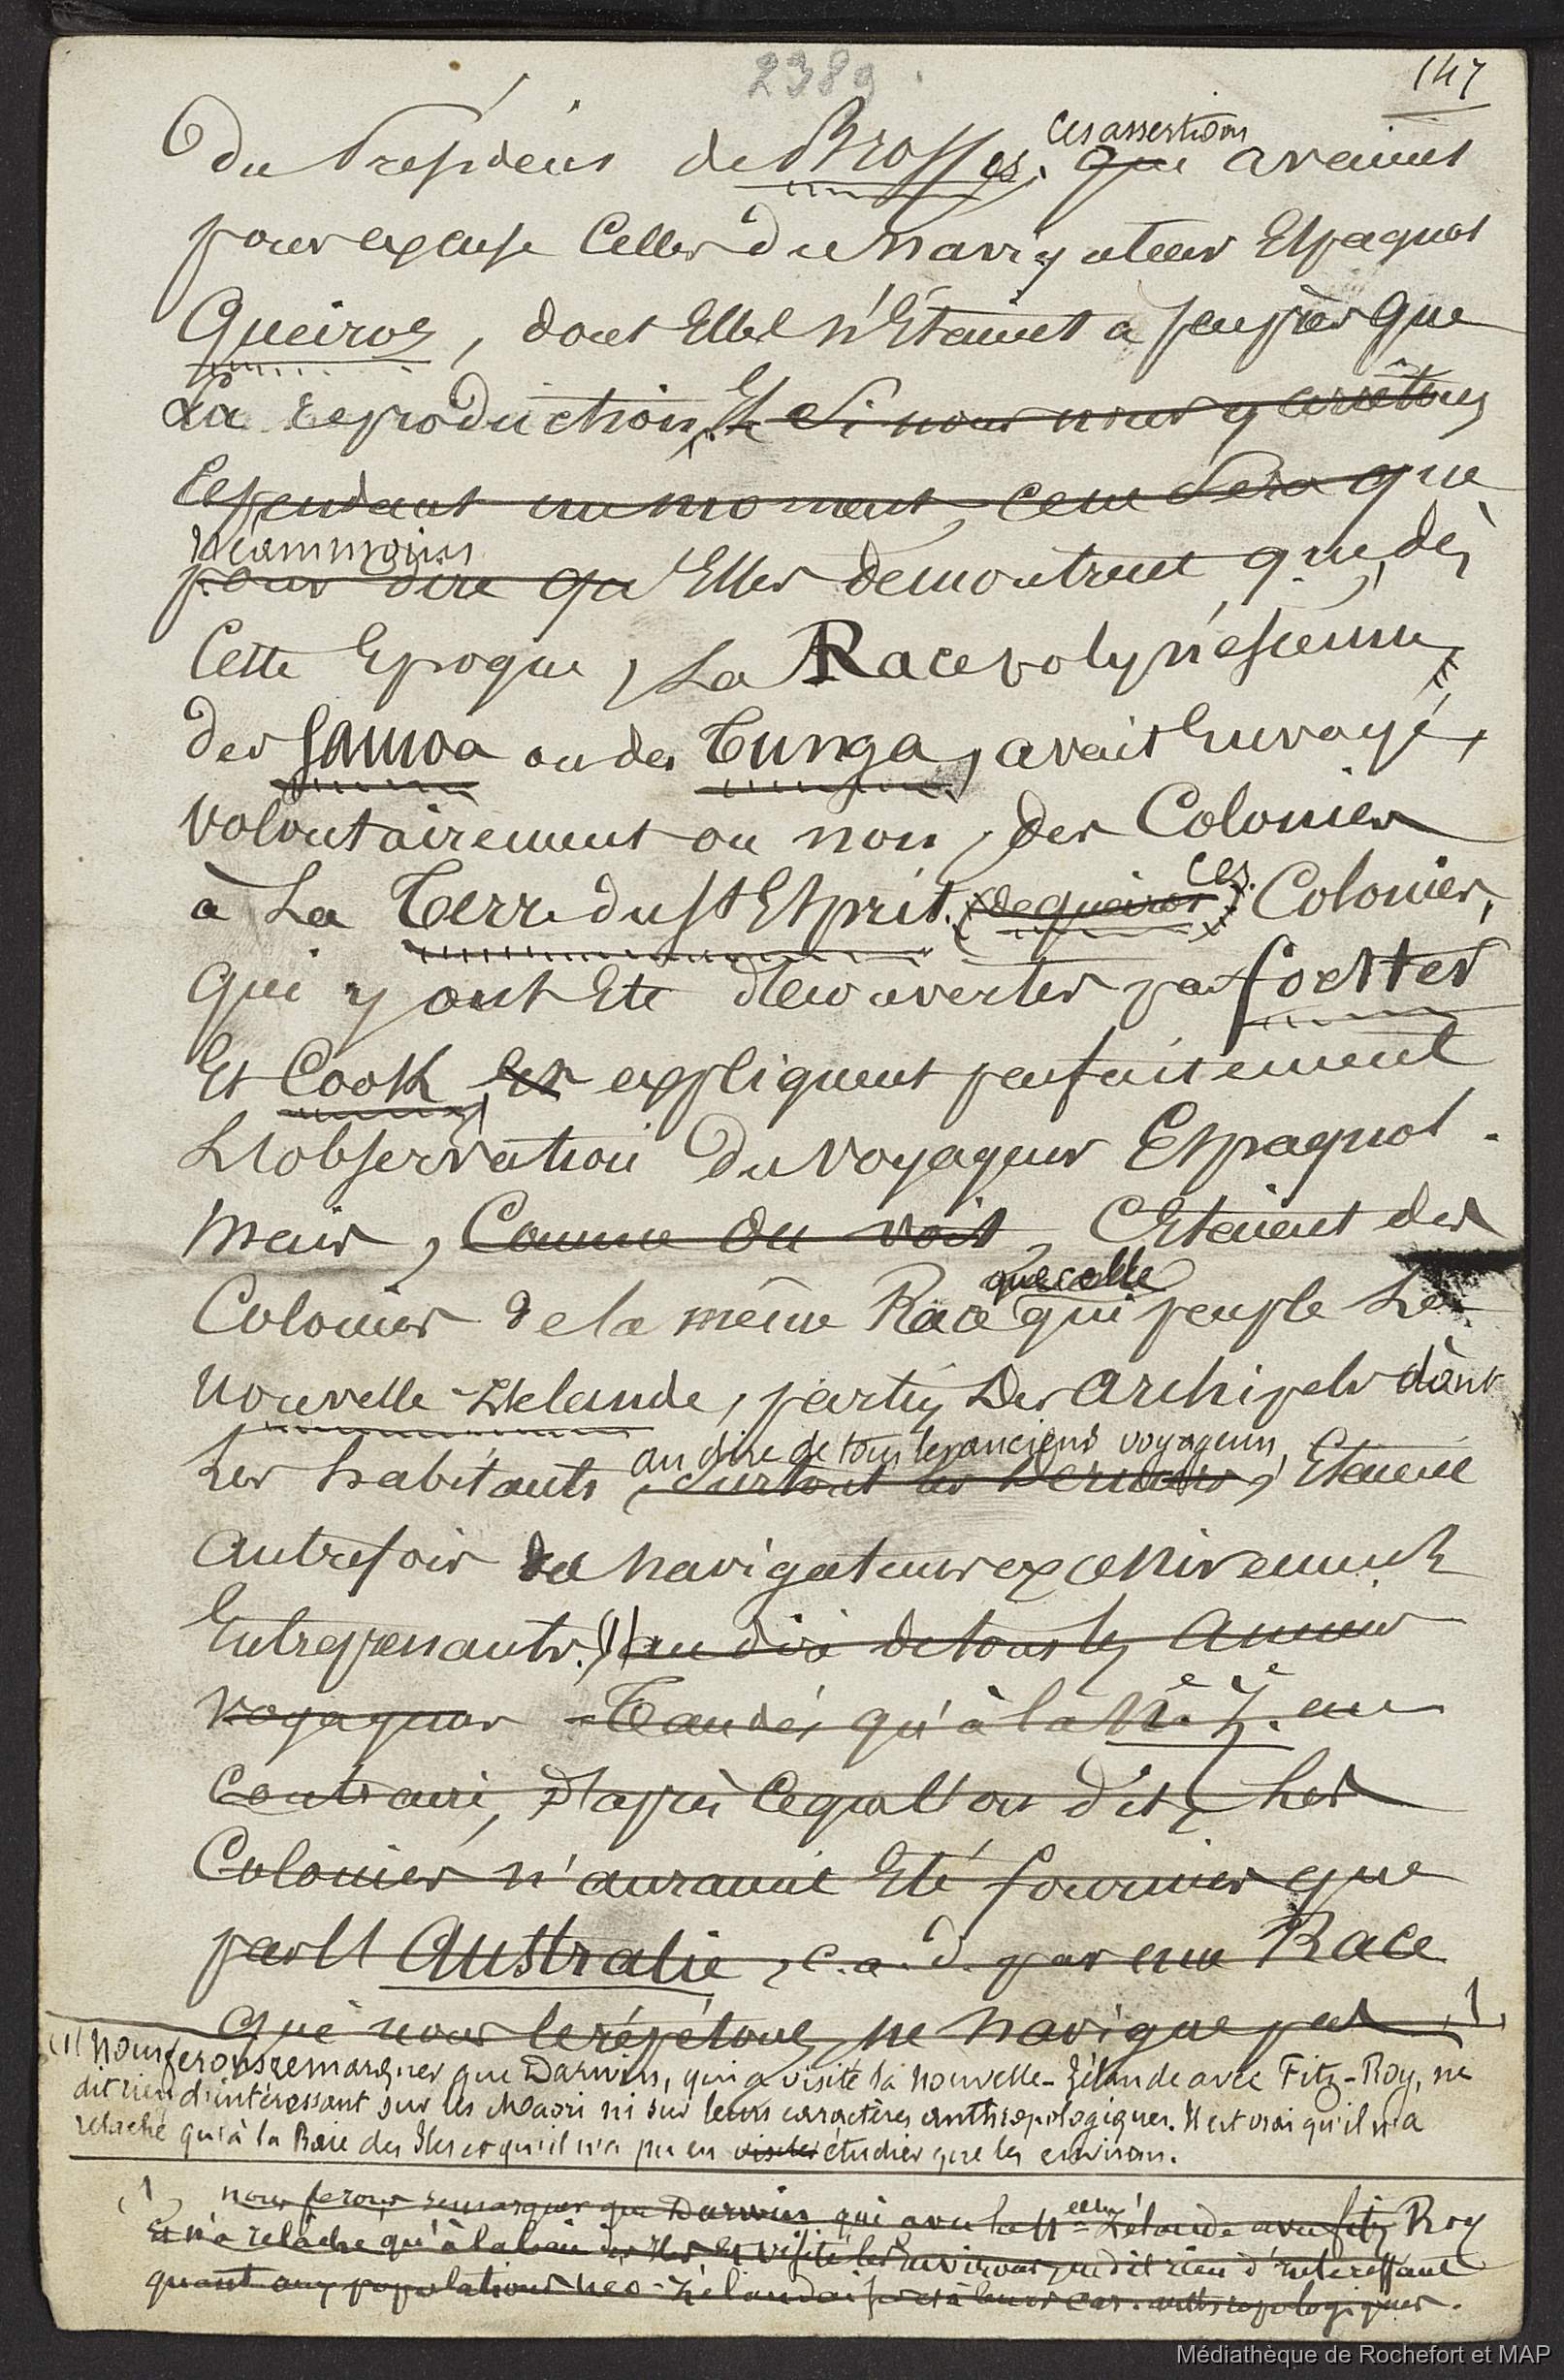 2389
147
Ces assertions
du Président de Brosses. qui avaient
pour excuse Celles du navigateur Espagnol
Queiros, dont Elles n'Etaient à peu près que
La reproduction. Et Si nous nous y arrêtons
Cependant un moment, ce ne Sera que
Neammoins
pour dire qu'Elles demontrent que, dès
Cette Epoque, La Race polynésienne
des Samoa ou des Tunga, avait Envoyé,
volontairement ou non, des Colonies
ces
à La Terre du St Esprit. (de queiros). Colonies,
qui y ont Eté découvertes par forster
Et Cook, Et expliquent parfaitement
L'observation du voyageur Espagnol.
Mais, Comme on voit, C'Etaient des
que celle
Colonies de la même Race qui peuple La
Nouvelle-Zelande, partis Des archipels dont
au dire de tous les anciens voyageurs,
Les habitants, Surtout les derniers, Etaient
autrefois des navigateurs excessivement
Entreprenants. (1) au dire de tous les anciens
voyageurs - Tandis qu'à la Ne. Ze. au
Contraire, D'après Ce que l'on dit, Les
Colonies n'auraient Eté fournies que
par l'Australie, c.a.d. par une Race
qui nous le répétons, ne navigue pas. 1.
(1) Nous ferons remarquer que Darwin, qui a visité la Nouvelle-Zélande avec Fitz-Roy, ne
dit rien d'intéressant sur les Maori ni sur leurs caractères anthropologiques. Il est vrai qu'il n'a
relaché qu'à la Baie des Iles et qu'il n'a pu en visiter étudier que les environs.
(1) nous ferons remarquer que Darwin qui a vu la Nelle Zélande avec fitz Roy
Et n'a relâché qu'à la baie des Iles Et visité les Environs, ne dit rien d'interessant
quant aux populations neo-Zélandaises et à leurs car. anthropologiques.
Médiathèque de Rochefort et MAP